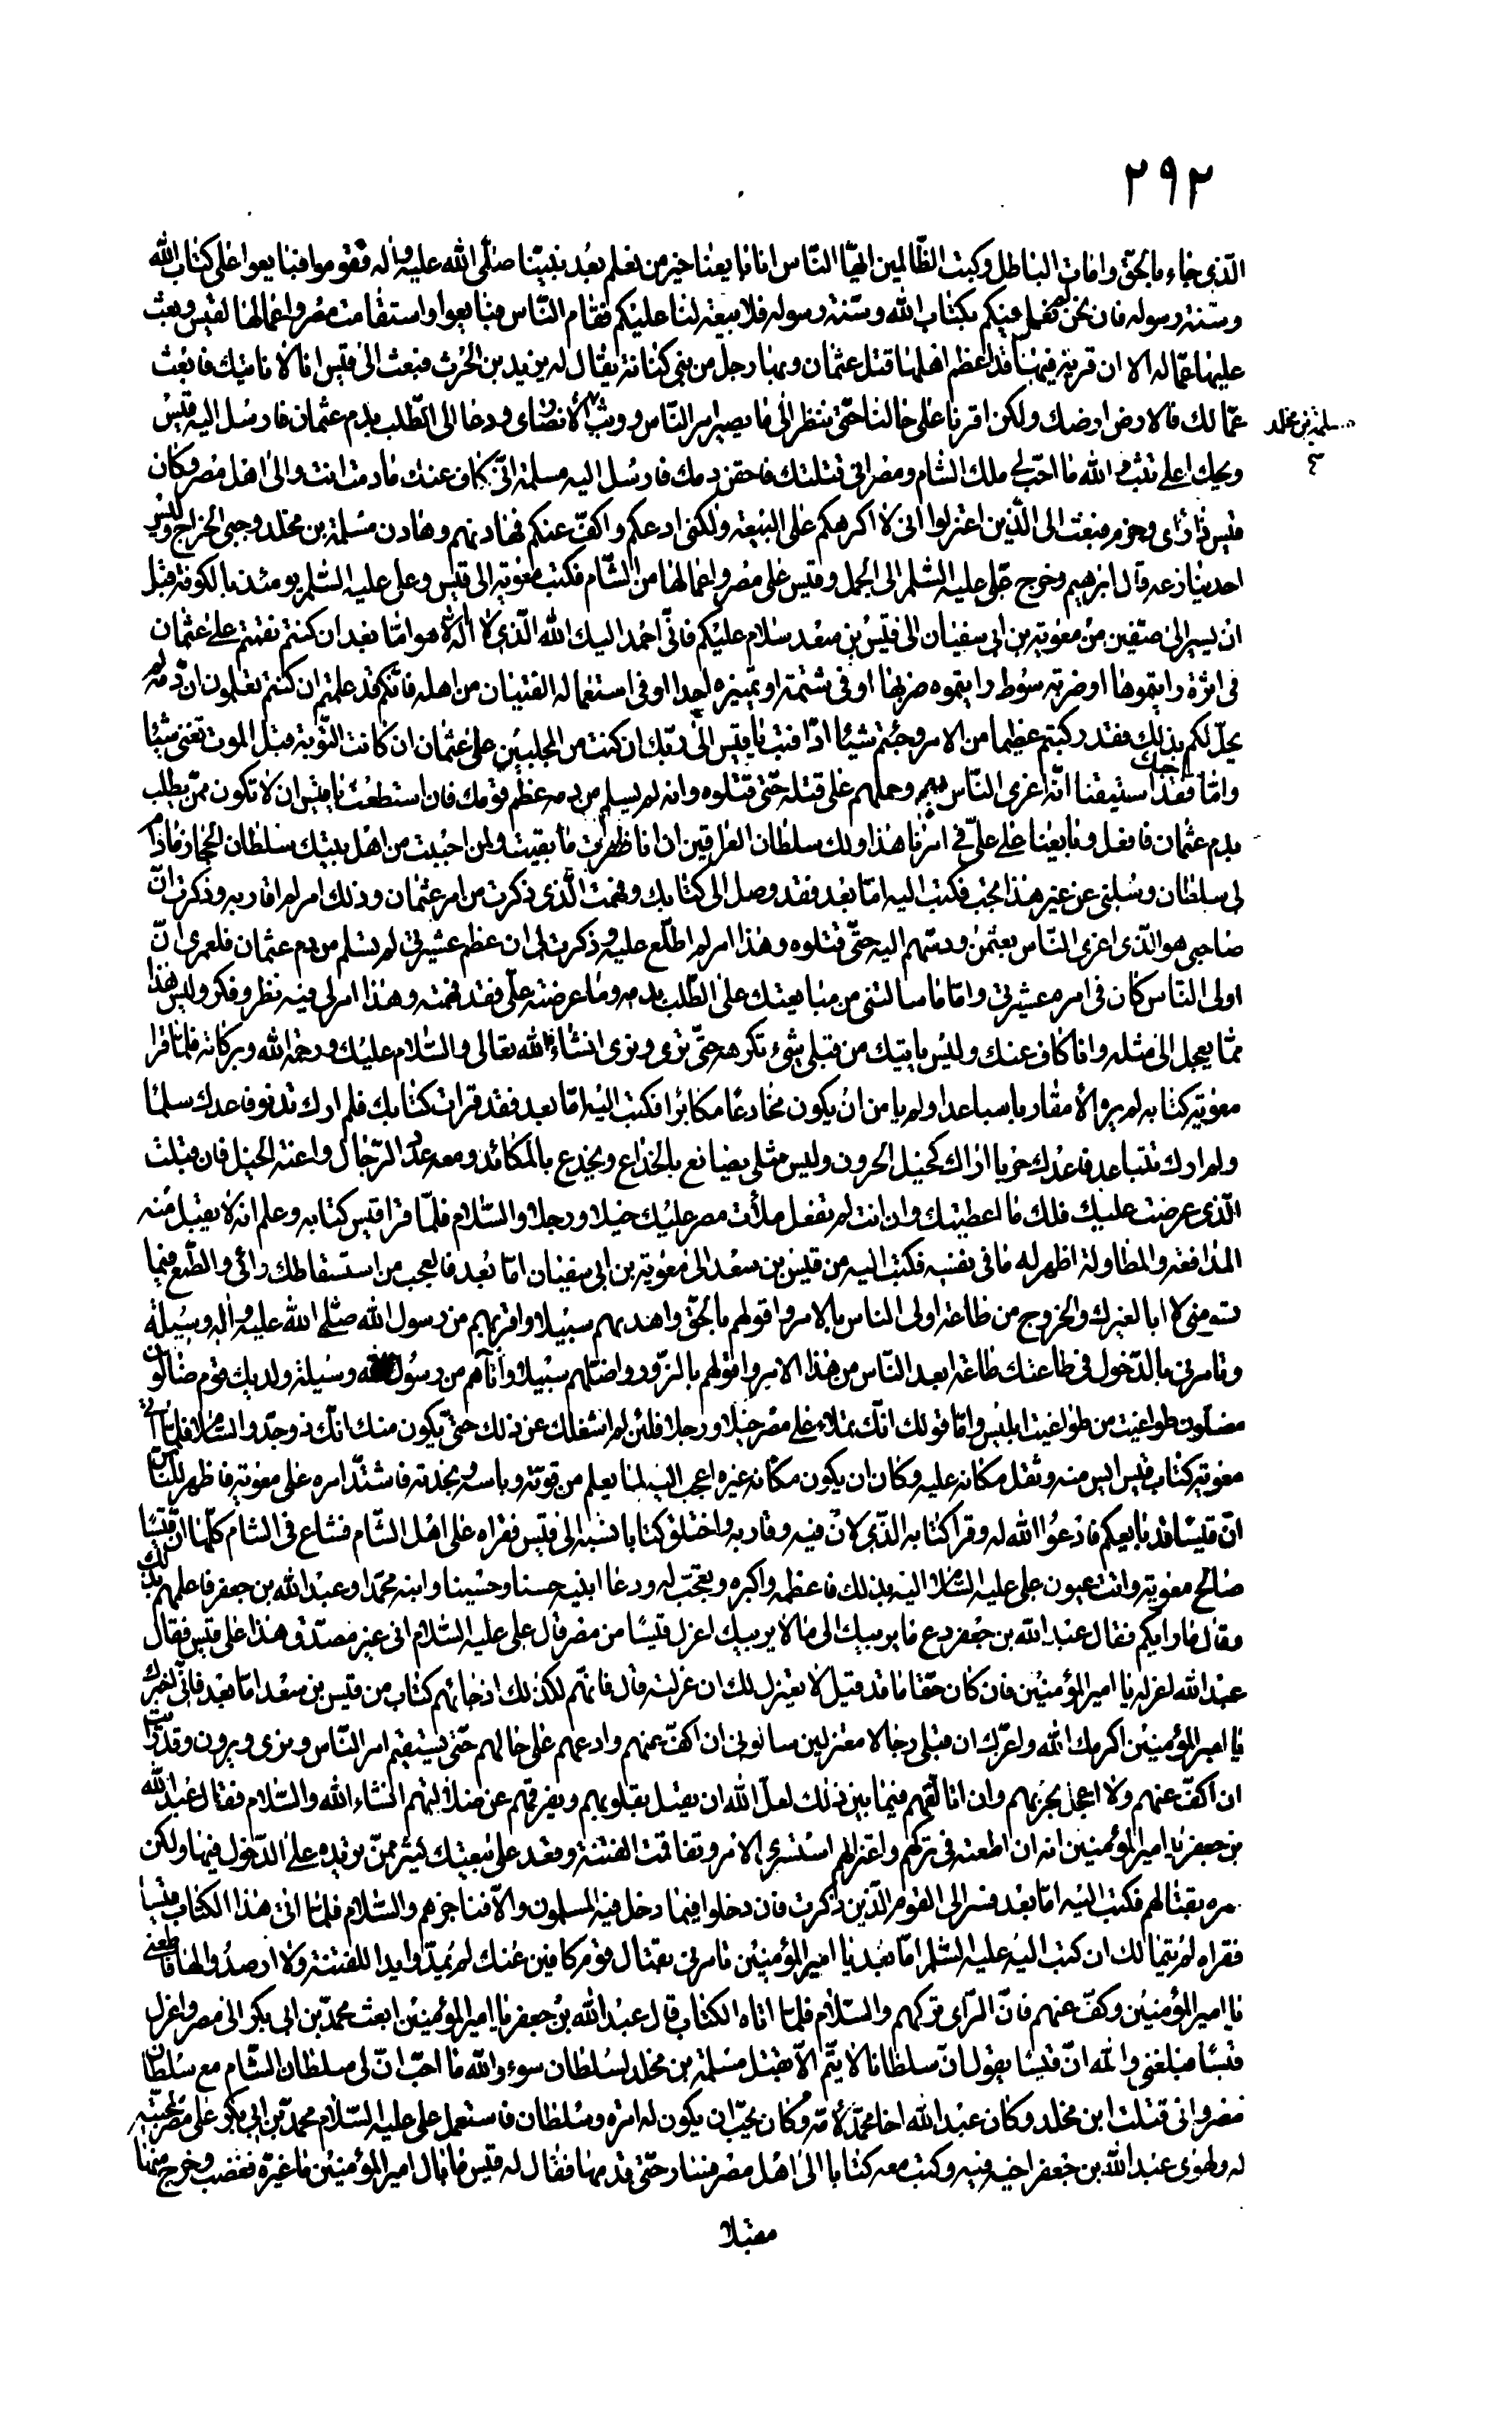 ٢٩٢
الّذي جاء بالحقّ وامات الباطل وكبت الظّالمين ايّها النّاس انا بايعنا خير من نعلم بعد نبيّنا صلّى الله عليه وآله فقوموا فبايعوا على كتاب الله
وسنّة رسوله فان نحن لم نعمل فيكم بكتاب الله وسنّة رسوله فلا بيعة لنا عليكم فقام النّاس فبايعوا واستقامت مصر واعمالها لقيس وبعث
عليها عمّاله الا ان قرية فيها قد اعظم اهلها قتل عثمان وبها رجل من بني كنانة يقال له يزيد بن الحرث فبعث الى قيس انا لا ناتيك فابعث
عمّالك فالارض ارضك ولكن اقرنا على حالنا حتّى ننظر الى ما يصير امر النّاس ووثب الانصاري ودعا الى الطّلب بدم عثمان فارسل اليه قيس
سلمة بن مخلد
ويحك اعلي تثب والله ما احبّ لي ملك الشام ومصر اني قتلتك فاحقن دمك فارسل اليه مسلمة انّي كاف عنك ما دمت انت والى اهل مصر وكان
قيس ذا راى وحزم فبعث الى الّذين اعتزلوا انى لا اكرهكم على البيعة ولكنى ادعكم واكفّ عنكم فهادنهم وهادن مسلمة بن مخلد وجبى الخراج وليس
احد ينازعه قال ابرهيم وخرج علي عليه السّلم الى الجمل وقيس على مصر واعمالها من الشّام فكتب معوية الى قيس وعلى عليه السّلم يومئذ بالكوفة قبل
ان يسير الى صفّين من معوية بن ابي سفيان الى قيس بن سعد سلام عليكم فانّي احمد اليك الله الّذي لا اله الا هو امّا بعد ان كنتم نقمتم على عثمان
فى اثرة رايتموها او ضربة سوط رايتموه ضربها او فى شتمة او تميزه احدا او فى استعماله الفتيان من اهله فانّكم قد علمتم ان كنتم تعلمون انّ دمه لم
يحلّ لكم بذلك فقد ركبتم عظيما من الامر وجئتم شيئا ادّا فتب يا قيس الى ربّك ان كنت من المجلبين على عثمان ان كانت التّوبة قبل الموت تغنى شيئا
وامّا صاحبك فقد استيقنا انّه اغرى النّاس وحملهم على قتله حتّى قتلوه وانه لم يسلم من دمه عظم قومك فان استطعت يا قيس ان لا تكون ممّن يطلب
بدم عثمان فافعل وبايعنا على عليّ في امرنا هذا ولك سلطان العراقين ان انا ظهرت ما بقيت ولمن احببت من اهل بيتك سلطان الحجاز ما دام
لى سلطان وسلنى عن غير هذا مما تحب فكتب اليه امّا بعد فقد وصل الىّ كتابك وفهمت الّذى ذكرت من امر عثمان وذلك امر لم اقاربه وذكرت انّ
صاحبى هو الّذى اغرى النّاس بعثمن ودسّهم اليه حتّى قتلوه وهذا امر لم اطّلع عليه وذكرت لى ان عظم عشيرتى لم تسلم من دم عثمان فلعمرى انّ
اولى النّاس كان فى امره عشيرتى وامّا ما سالتنى من مبايعتك على الطّلب بدمه وما عرضته علىّ فقد فهمته وهذا امر لى فيه نظر وفكر وليس هذا
ممّا يعجل الى مثله وانا كاف عنك وليس ياتيك من قبلى شىء تكرهه حتّى ترى ونرى انشاء الله تعالى والسّلام عليك ورحمة الله وبركاته فلمّا قرا
معوية كتابه لم يره الا مقاربا مباعدا ولم يامن ان يكون مخادعا مكابرا فكتب اليه امّا بعد فقد قرات كتابك فلم ارك تدنو فاعدك سلما
ولم ارك تتباعد فاعدك حربا اراك كحبل الحرون وليس مثلى يصانع بالخداع ويخدع بالمكائد ومعه عدد الرّجال واعنة الخيل فان قبلت
الّذى عرضت عليك فلك ما اعطيتك وان انت لم تفعل ملات مصر عليك خيلا ورجلا والسّلام فلمّا قرا قيس كتابه وعلم انه لا يقبل منه
المدافعة والمطاولة اظهر له ما فى نفسه فكتب اليه من قيس بن سعد الى معوية بن ابى سفيان امّا بعد فالعجب من استسقاطك رائى والطّمع فيما
تسومنى لا ابا لغيرك والخروج من طاعة اولى الناس بالامر واقولهم بالحقّ واهديهم سبيلا واقربهم من رسول الله صلّى الله عليه وآله وسيلة
وتامرنى بالدّخول فى طاعتك طاعة ابعد النّاس من هذا الامر واقولهم بالزّور واضلّهم سبيلا وانآهم من رسول الله وسيلة ولديك قوم ضالّون
مضلّون طواغيت من طواغيت ابليس وامّا قولك انّك تملاء على مصر خيلا ورجلا فلئن لم اشغلك عن ذلك حتّى يكون منك انّك ذو جدّ والسّلام فلمّا اتى
معوية كتاب قيس ايس منه وثقل مكانه عليه وكان ان يكون مكانه غيره اعجب اليه لما يعلم من قوّته وباسه ونجدته فاشتدّ امره على معوية فاظهر للنّاس
انّ قيسا قد بايعكم فادعوا الله له وقرا كتابه الّذى لان فيه وقاربه واختلق كتابا نسبه الى قيس فقراه على اهل الشّام فشاع فى الشام كلّها انّ قيسا
صالح معوية واتت عيون على عليه السّلام اليه بذلك فاعظمه واكبره وتعجّب له ودعا ابنيه حسنا وحسينا وابنه محمّدا وعبد الله بن جعفر فاعلمهم بذلك
وقال ما رايكم فقال عبد الله بن جعفر دع ما يريبك الى ما لا يريبك اعزل قيسا من مصر قال على عليه السّلام انى غير مصدّق هذا على قيس فقال
عبد الله اعزله يا امير المؤمنين فان كان حقّا ما قد قيل لا يعتزل لك ان عزلته قال فانّهم لكذلك اذ جائهم كتاب من قيس بن سعد امّا بعد فانّى اخبرك
يا امير المؤمنين اكرمك الله واعزّك ان قبلى رجالا معتزلين سالونى ان اكفّ عنهم وادعهم على حالهم حتّى يستقيم امر النّاس ونرى ويرون وقد رايت
ان اكفّ عنهم ولا اعجل بحربهم وان اتالفهم فيما بين ذلك لعلّ الله ان يقبل بقلوبهم ويفرقهم عن ضلالتهم انشاء الله والسّلام فقال عبد الله
بن جعفر يا امير المؤمنين انه ان اطعته فى تركهم واعتزالهم استشرى الامر وتفاقمت الفتنة وقعد على بيعتك كثير ممّن تريده على الدّخول فيها ولكن
مره بقتالهم فكتب اليه امّا بعد فسر الى القوم الّذين ذكرت فان دخلوا فيما دخل فيه المسلمون والّا فناجزهم والسّلام فلمّا اتى هذا الكتاب قيسا
فقراه لم يتمالك ان كتب اليه عليه السّلم امّا بعد يا امير المؤمنين تامرنى بقتال قوم كافين عنك لم يمدّوا يدا للفتنة ولا ارصدوا لها فاطعنى
يا امير المؤمنين وكفّ عنهم فانّ الرّاى تركهم والسّلام فلمّا اتاه الكتاب قال عبد الله بن جعفر يا امير المؤمنين ابعث محمّد بن ابى بكر الى مصر واعزل
قيسا فبلغنى والله انّ قيسا يقول انّ سلطانا لا يتمّ الّا بقتل مسلمة بن مخلد لسلطان سوء والله ما احبّ انّ لى سلطان الشّام مع سلطان
مصر وانى قتلت ابن مخلد وكان عبد الله اخا محمّد لامّه وكان يحبّ ان يكون له امره وسلطان فاستعمل على عليه السّلام محمّد بن ابى بكر على مصر لمحبّته
له ولهوى عبد الله بن جعفر اخيه فيه وكتب معه كتابا الى اهل مصر فسار حتّى قدمها فقال له قيس ما بال امير المؤمنين ما غيّره فغضب وخرج منها
مقبلا